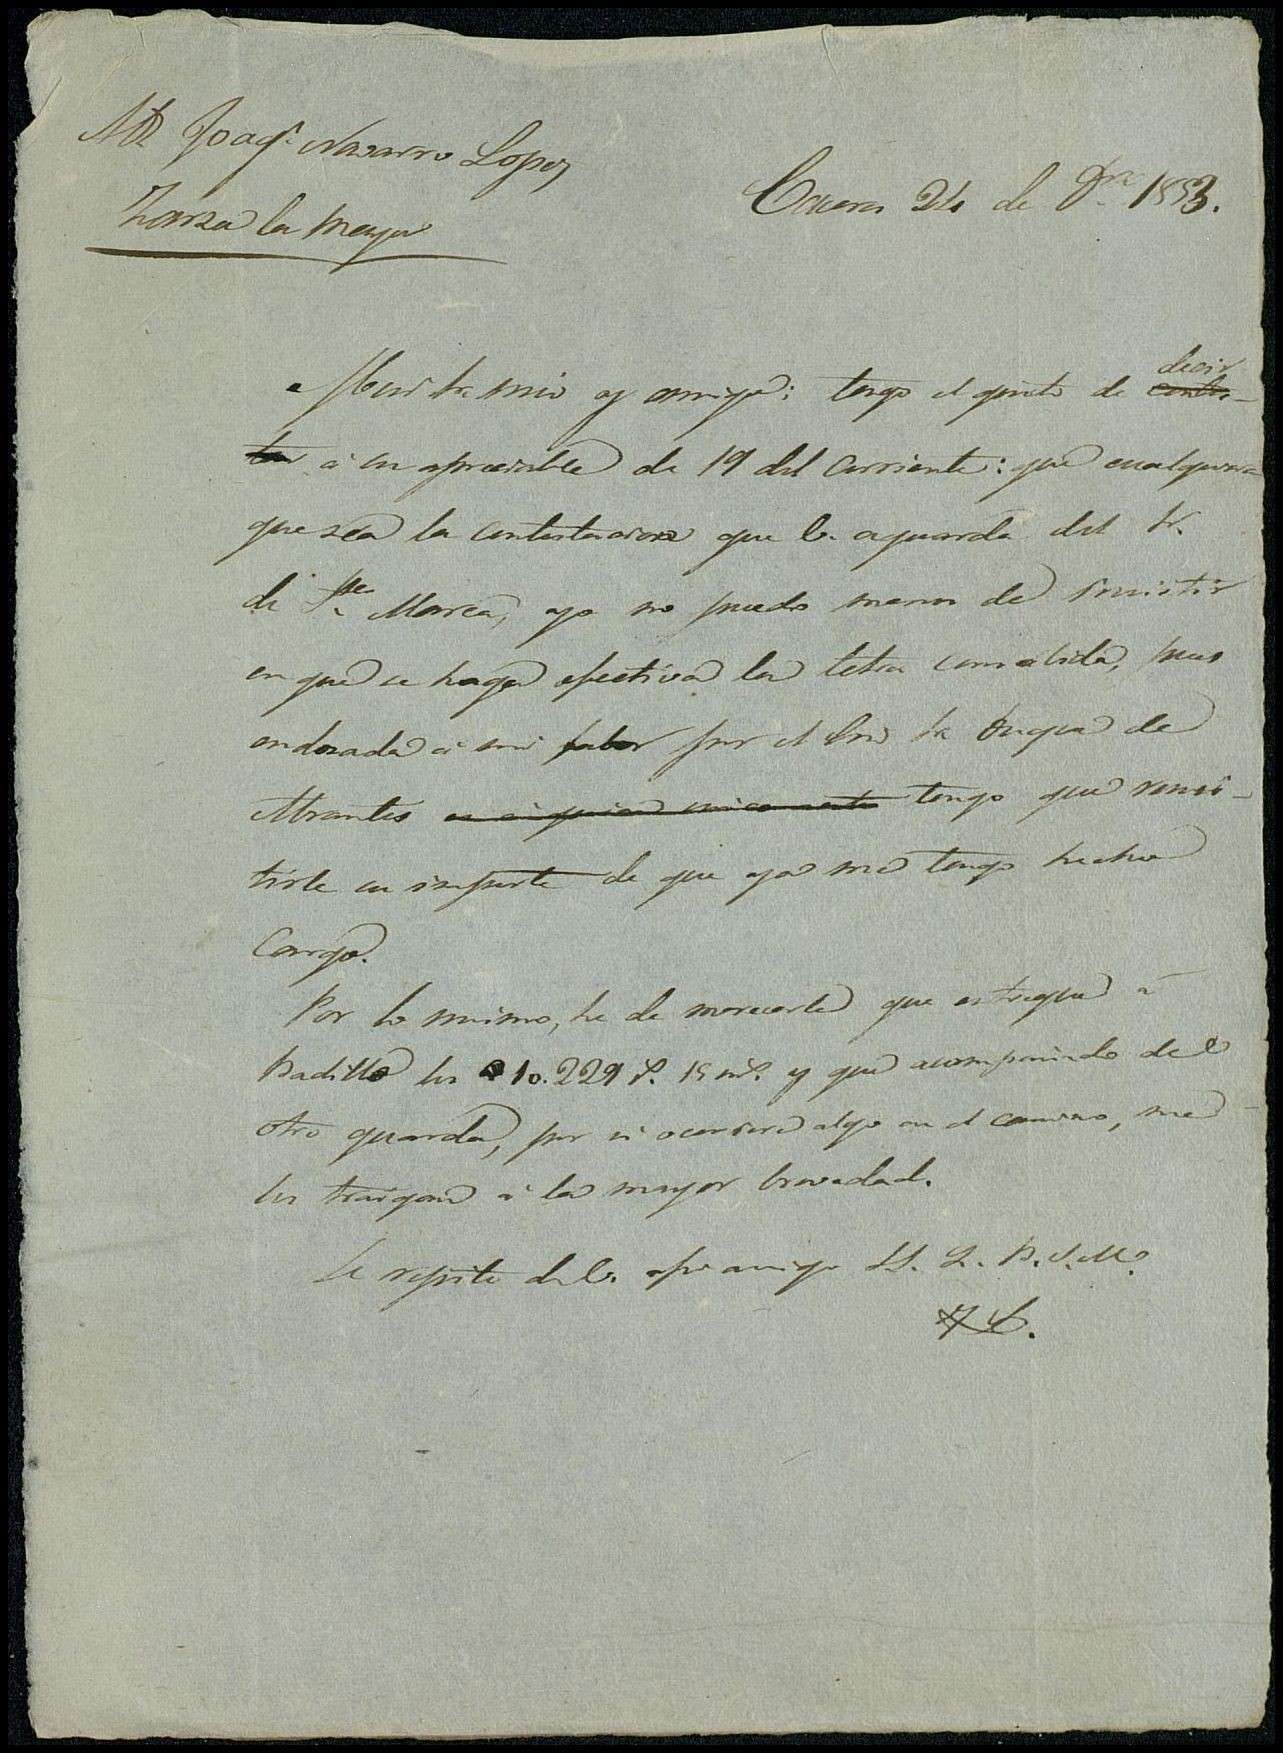 Joaqn. Navarro Lopez
Zarza la mayor
Caceres 24 de 1853.
decir
Muy Sr. mio y amigo: tengo el gusto de contes-
tar á su apreciable de 19 del corriente: que cualquiera
que sea la contestacion que V. aguarda del Sr.
de Marca, yo no puedo menos de insistir
en que se haga efectiva la letra consabida, pues
endosada á mi favor por el Sra Duque de
Abrantes tengo que remi-
tirle su importe de que ya me tengo hecho
Cargo.
Por lo mismo, he de merecerle que entregue á
Badillo los 10.229 rs. 15 ms. y que acompañado del
otro guarda, por si ocurriere algo en el camino, me
los traigan á la mayor brevedad.
Se repite de V. afmo amigo S. S. Q. B. S. M.